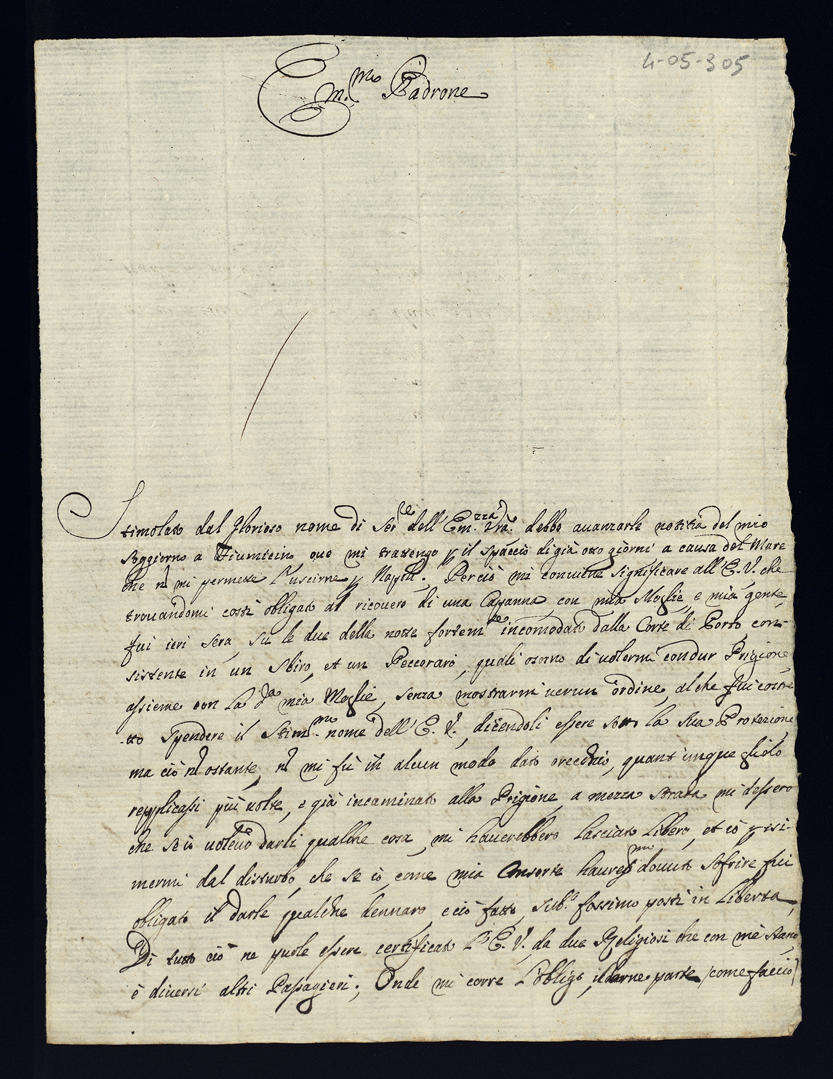 4-05-305
Em.mo Padrone
Stimolato dal glorioso nome di Ser.re dell'Em.zza Vra. debbo auanzarle notitia del mio
soggiorno a Fiumicino oue mi trattengo p il spaccio di già otto giorni a causa del Mare
che nō mi permette l'uscirne p Napoli. Perciò mi conuiene significare all'E. V. che
trouandomi costì obligato al ricouero di una Capanna con mia Moglie, e mia gente,
fui ieri sera su le due della notte fortem.te incomodato dalla Corte di Porto con-
sistente in un Sbirro, et un Peccoraro, quali osorno di uolermi condur Prigione,
assieme con la d.a mia Moglie, senza mostrarmi uerun ordine, al che fui costre-
-tto spendere il Stim.mo nome dell'E. V., dicendoli essere sotto la sua Protezione
ma ciò nō ostante, nō mi fù in alcun modo dato orecchio, quantunque gliolo
repplicassi più uolte, e già incaminato alla Prigione, a mezza strada mi dessero
che se io uoleuo darli qualche cosa, mi hauerebbero lasciato libero, et io p esi-
mermi dal disturbo, che se io, come mia Consorte haurespmo douuto sofrire fui
obligato il darle qualche dennaro, e ciò fatto, sub.o fossimo posti in libertà,
Di tutto ciò ne puole essere certificato l'E. V. da due Religiosi che con me stano,
e diuersi altri Passagieri; Onde mi corre l'obligo, il darne parte (come faccio)